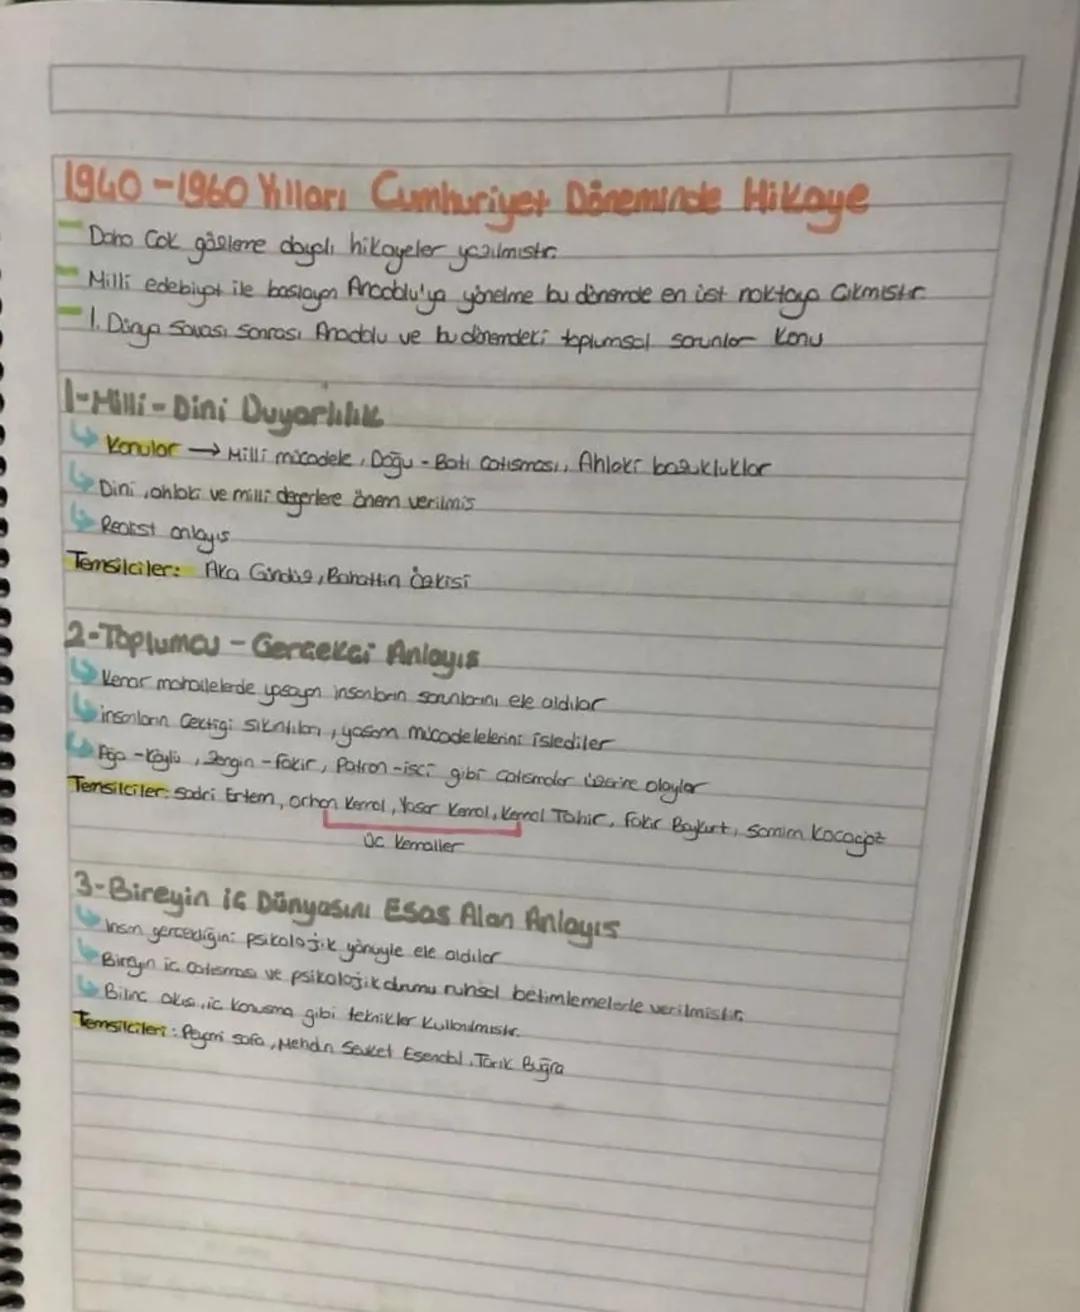 1940-1960 Yılları Cumhuriyet Döneminde Hikaye
Daha Çok gözleme dayalı hikayeler yazılmıştır.
Milli edebiyat ile başlayan Anadolu'ya yönelme bu dönemde en üst noktaya Çıkmıştır.
1. Dünya Savaşı sonrası Anadolu ve bu dönemdeki toplumsal sorunlar Konu
1-Milli-Dini Duyarlılık
Konular → Milli mücadele, Doğu-Batı Çatışması, Ahlaki bozukluklar
Dini, ahlaki ve milli değerlere önem verilmiş
Realist anlayış
Temsilciler: Aka Gündüz, Bahattin Özkişi
2-Toplumcu-Gerçekçi Anlayış
Kenar mahallelerde yaşayan insanların sorunlarını ele aldılar
insanların Çektiği sıkıntıları, yaşam mücadelelerini işlediler
Ağa-Köylü, Zengin-fakir, Patron-işçi gibi çatışmalar üzerine olaylar
Temsilciler: Sadri Ertem, orhan Kemal, Yaşar Kemal, Kemal Tahir, Fakir Baykurt, Samim Kocagöz
Üç Kemaller
3-Bireyin iç Dünyasını Esas Alan Anlayış
İnsan gerçekliğini psikolojik yönüyle ele aldılar
Bireyin iç çatışması ve psikolojik durumu ruhsal betimlemelerle verilmiştir.
Bilinç akışı, iç konuşma gibi teknikler Kullanılmıştır.
Temsilcileri: Peyami Safa, Mehduh Şevket Esendal, Tarık Buğra